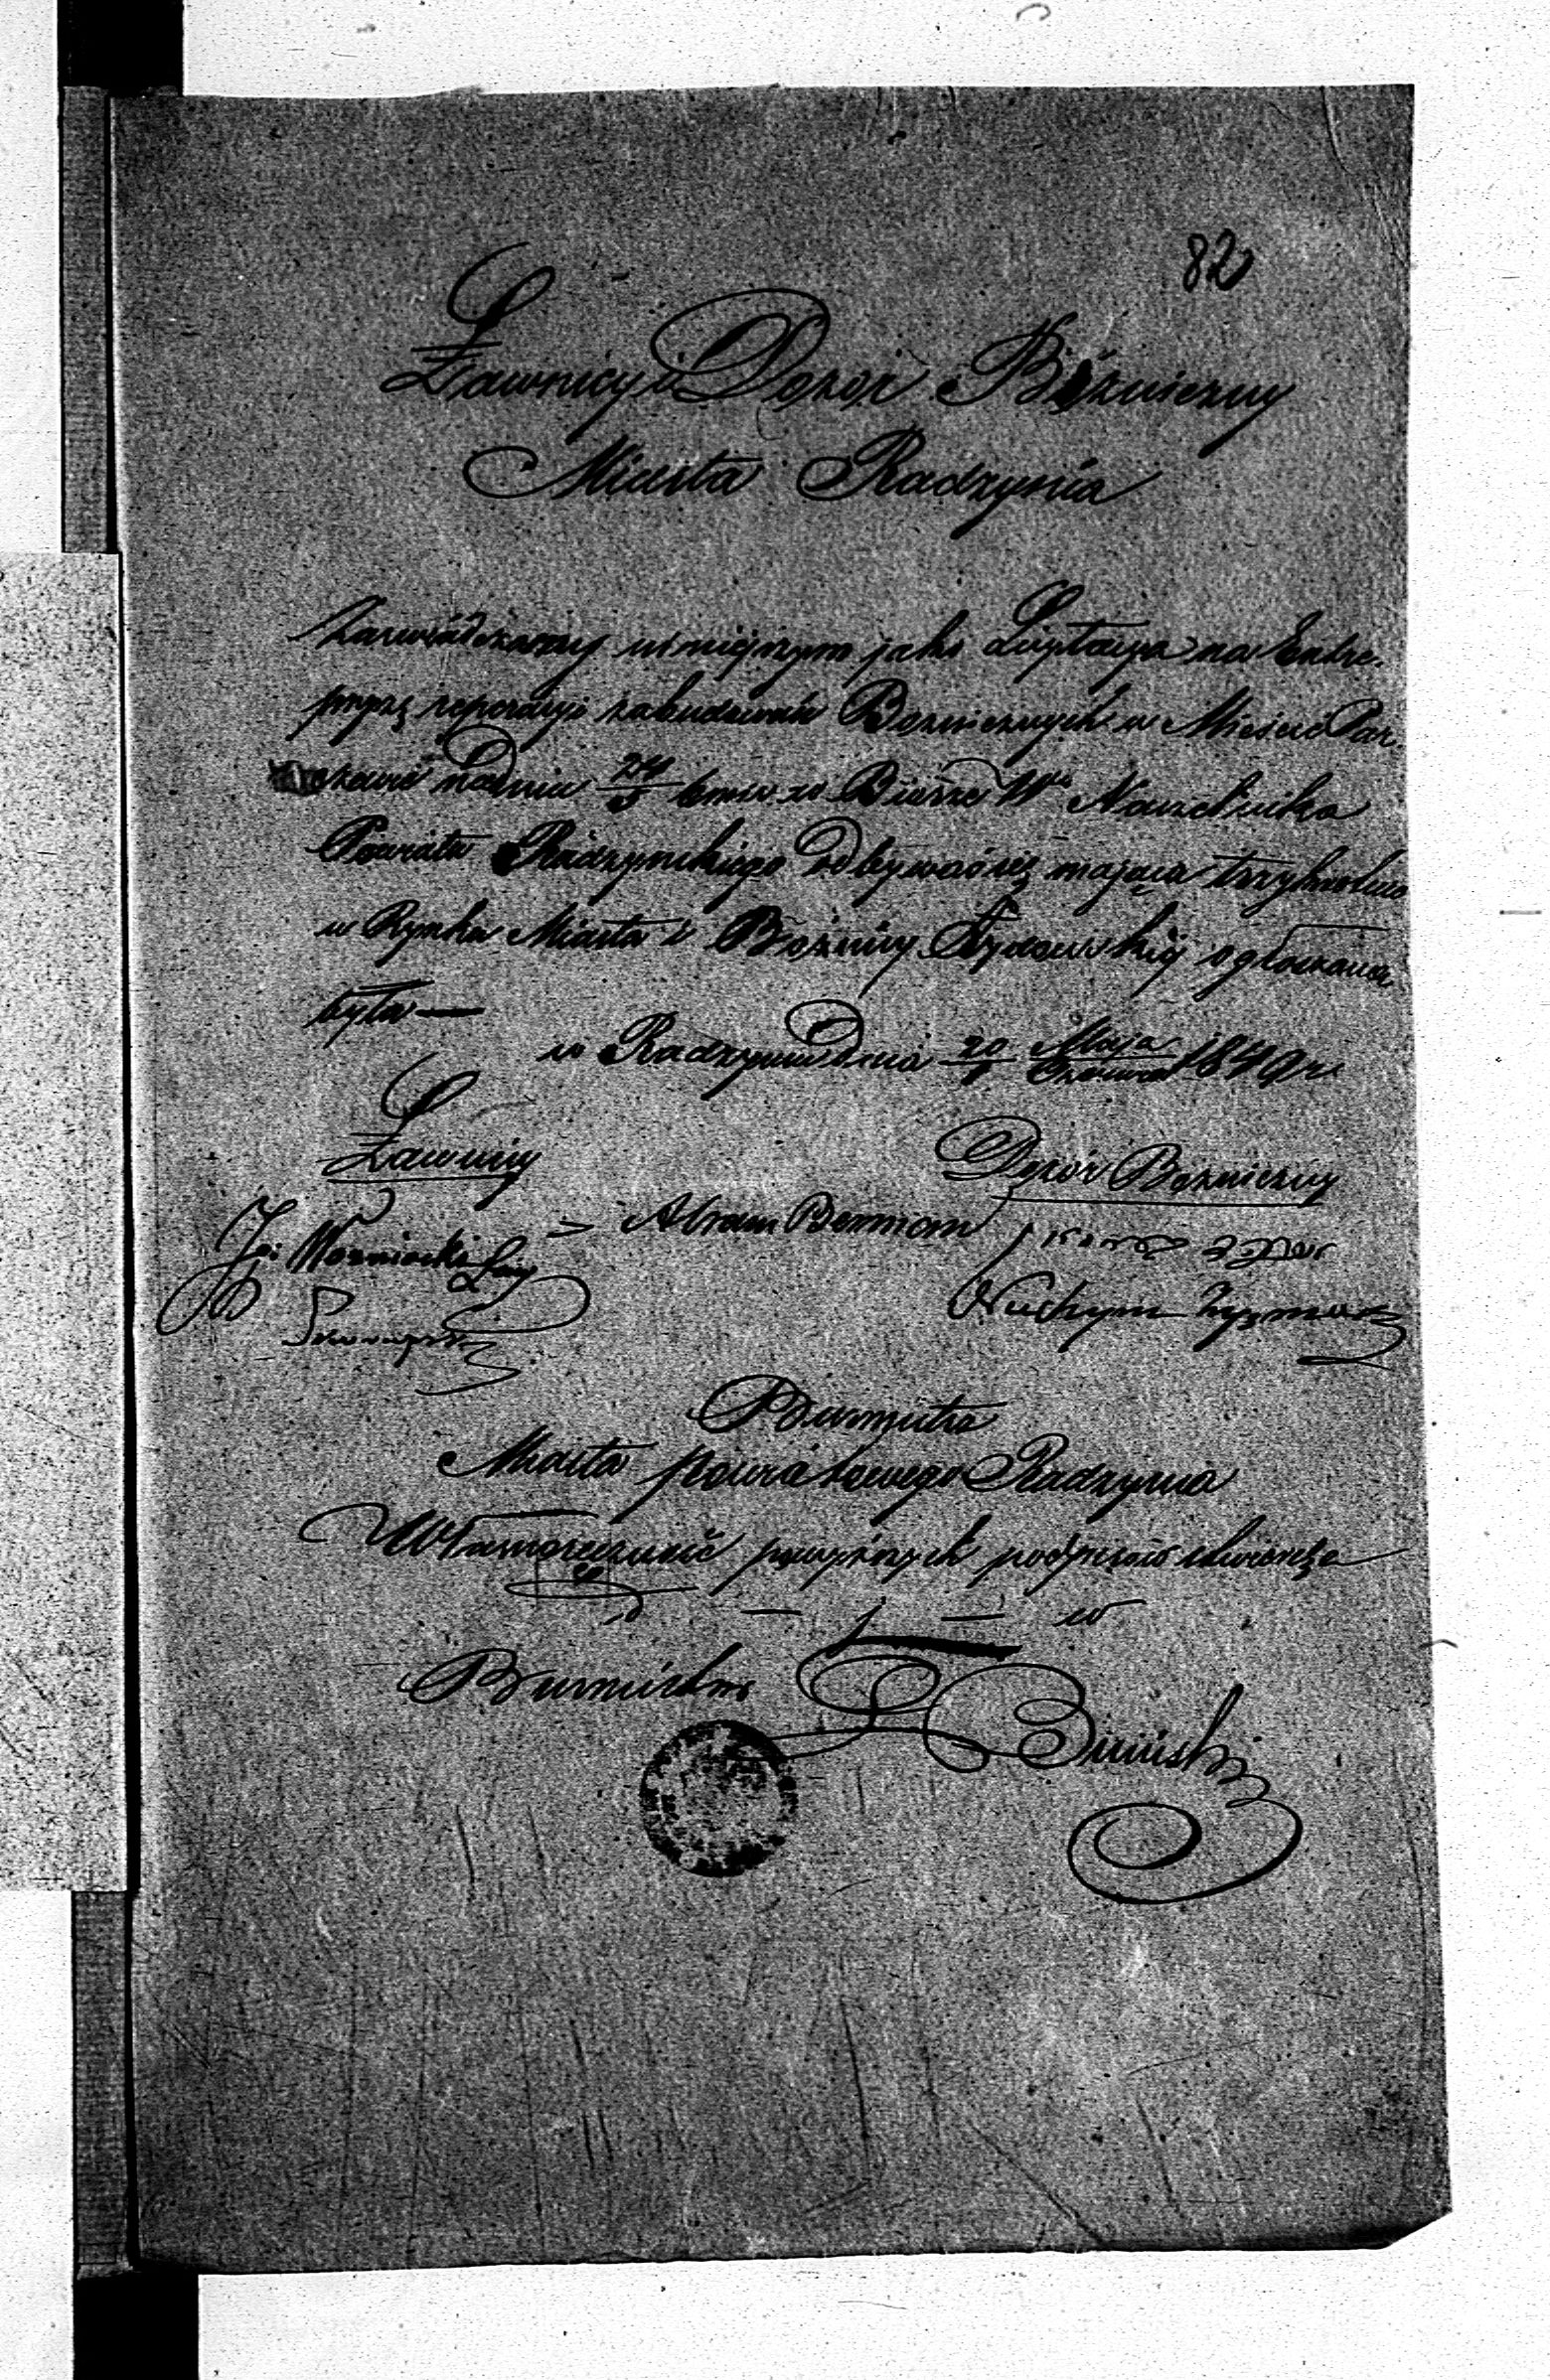 82
Ławnicy i Dozór Bóżniczny
Miasta Radzynia
Zaswiadczamy niniejszym jako Licytacya na Entre-
pryzę reperacyi zabudowań Boznicznych w Mieście Par-
czewie na dniu 24/5 b m i r w Biórze W° Naczelnika
Powiatu Radzynskiego odbywać się mająca trzykrotnie
w Rynku Miasta i Bożnicy Żydowskiej ogłoszona
była —
w Radzyniu Dnia 20/1 Maja/Czerwca 1849 r.
Ławnicy
Dozór Bożniczny
Woźniacki Ław
Abram Berman
Nuchym
Burmistrz
Miasta Powiatowego Radzynia
Własnoręczność powyższych podpisów
Burmistrz